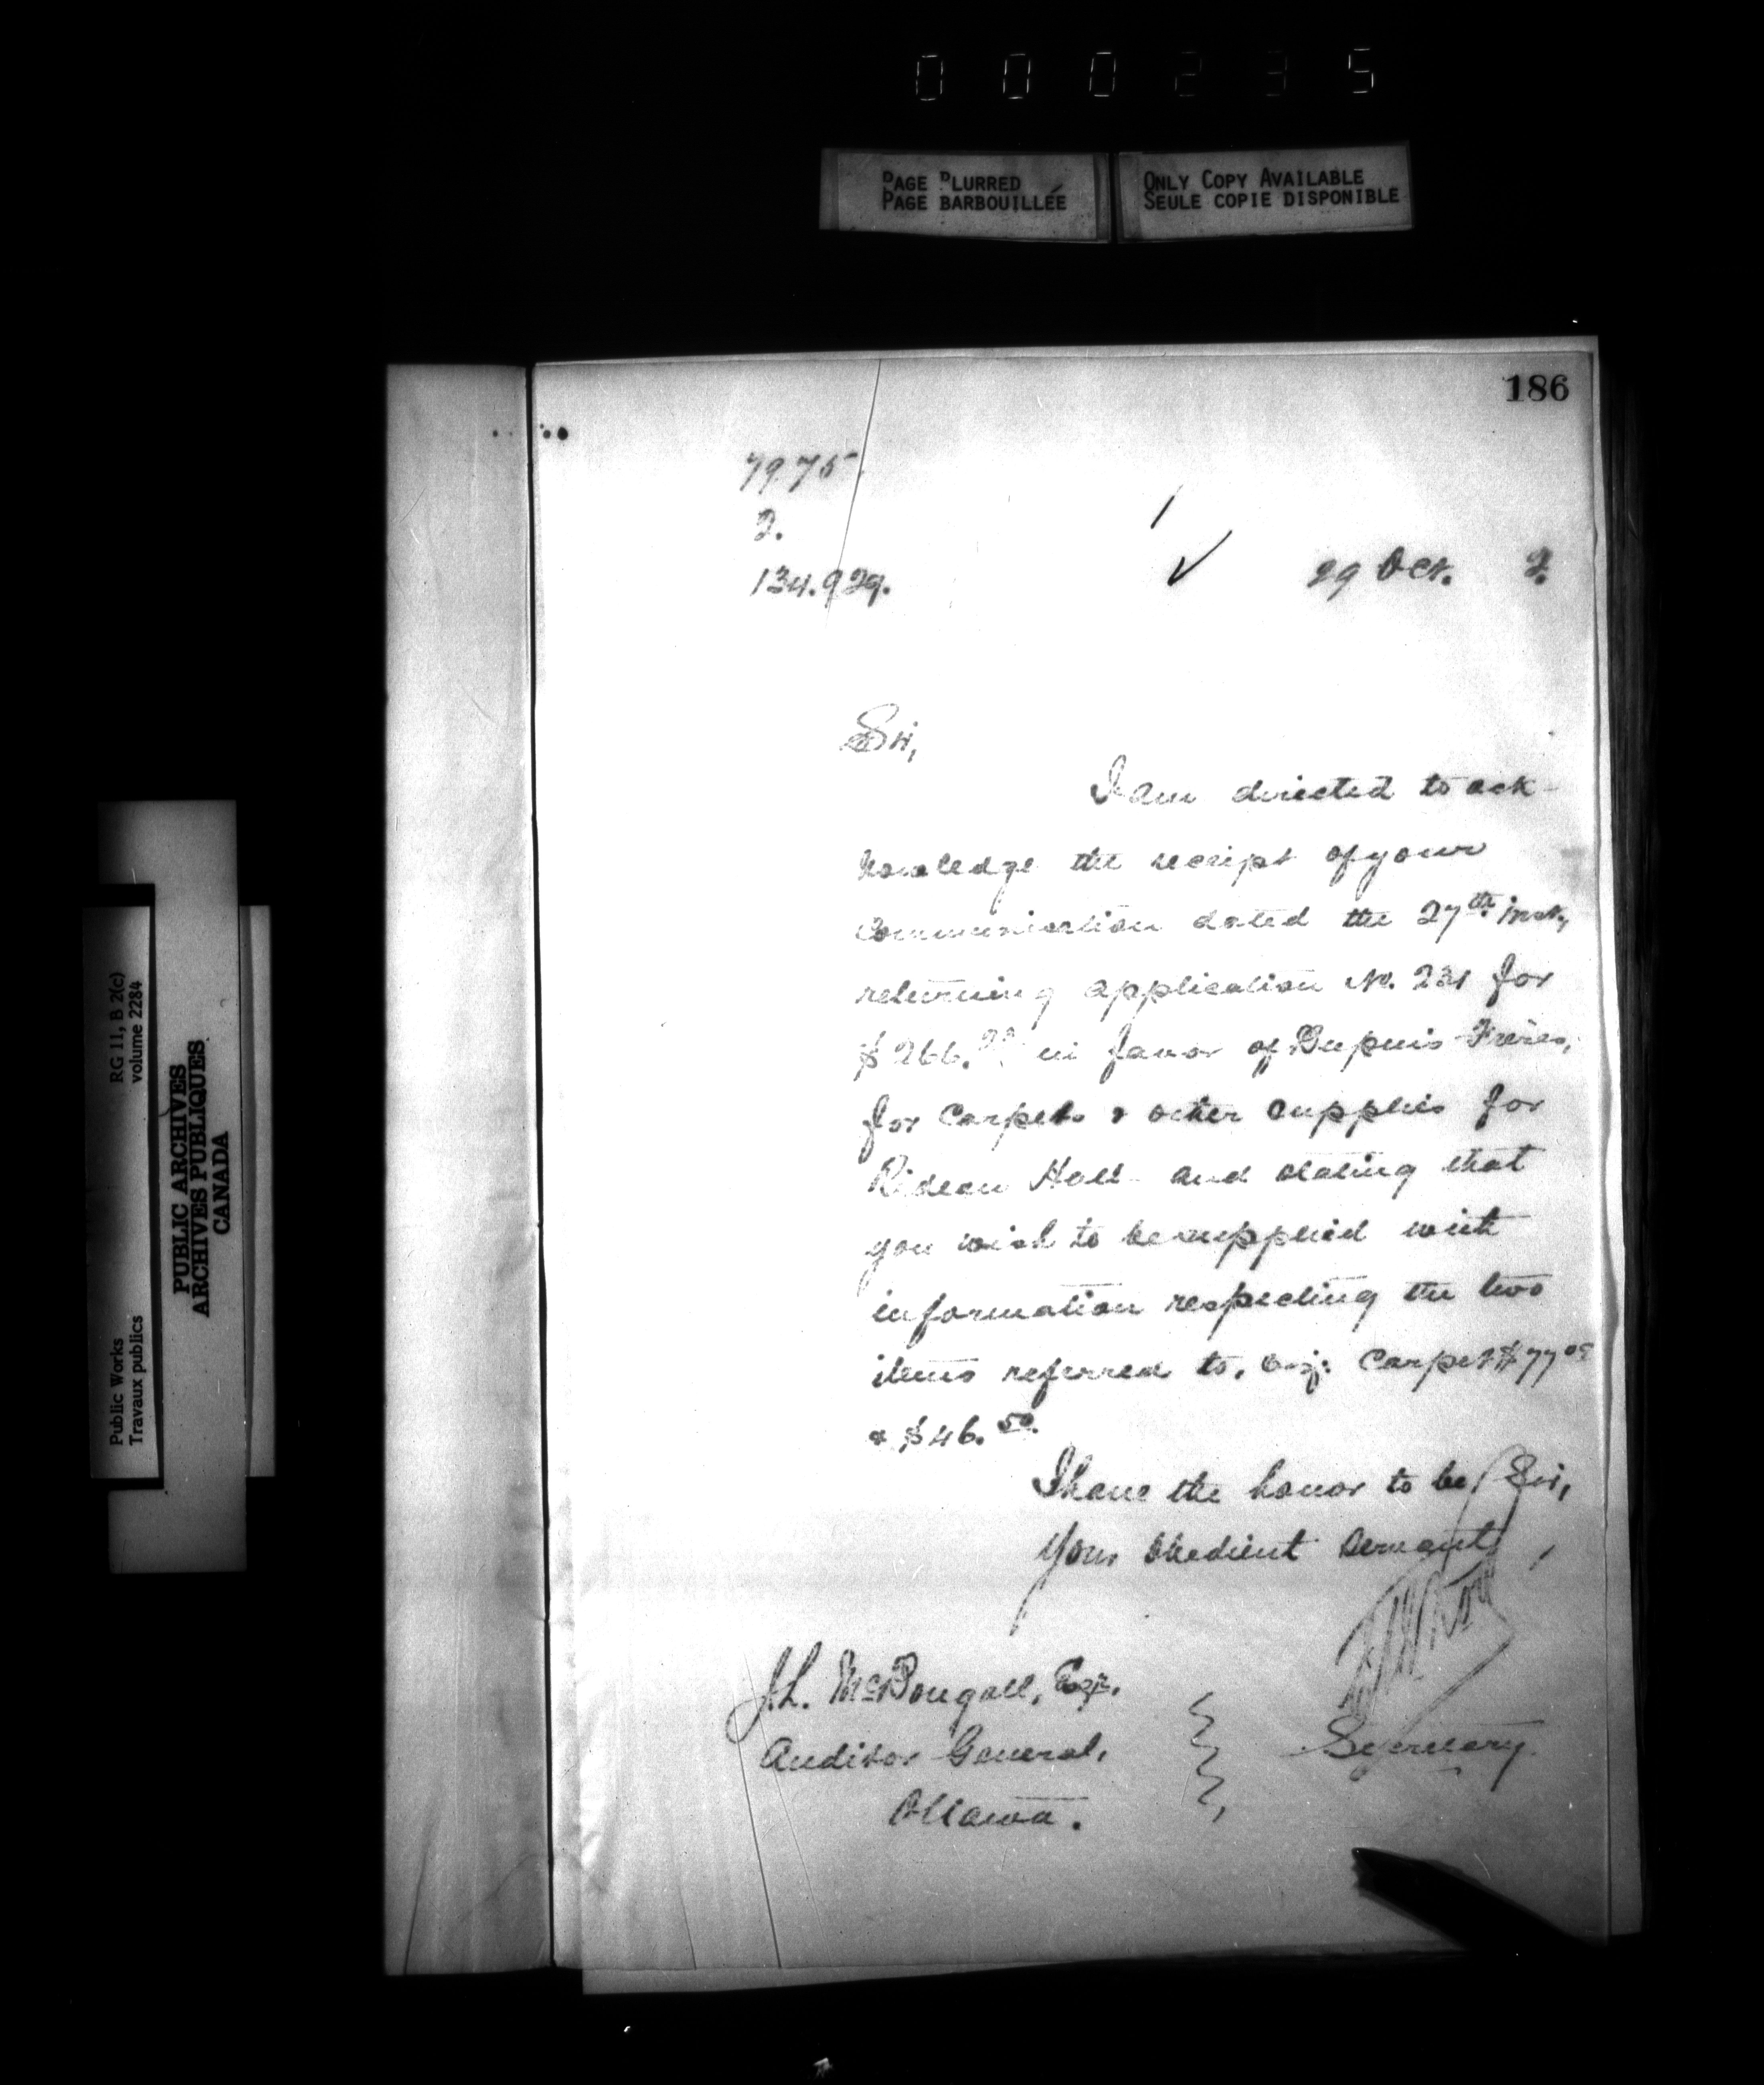 000235
PAGE BLURRED
PAGE BARBOUILLÉE
ONLY COPY AVAILABLE
SEULE COPIE DISPONIBLE
186
7975.
2.
134.929.
29 Oct. 2.
Sir,
I am directed to ack-
nowledge the receipt of your
communication dated the 27th inst,
returning application No. 231 for
$266. in favor of Dupuis Frères,
for Carpets & other supplies for
Rideau Hall and stating that
you wish to be supplied with
information respecting the two
items referred to, Carpet $77
& $46.50.
I have the honor to be, Sir,
Your obedient servant,
J.L. McDougall, Esqr.
Auditor General,
Ottawa.
Secretary.
Public Works
Travaux publics
RG 11, B 2(c)
volume 2284
PUBLIC ARCHIVES
ARCHIVES PUBLIQUES
CANADA